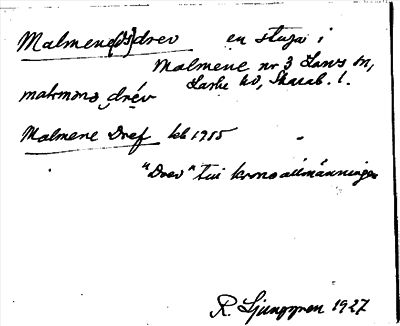 Malmene(ds)drev en stuga i
Malmene nr 3 Laws sn,
Laske hd, Skarab. l.
malmens drév
Malmene Dref kb 1915
"Drev" till kronoallmänningen
R. Ljunggren 1927